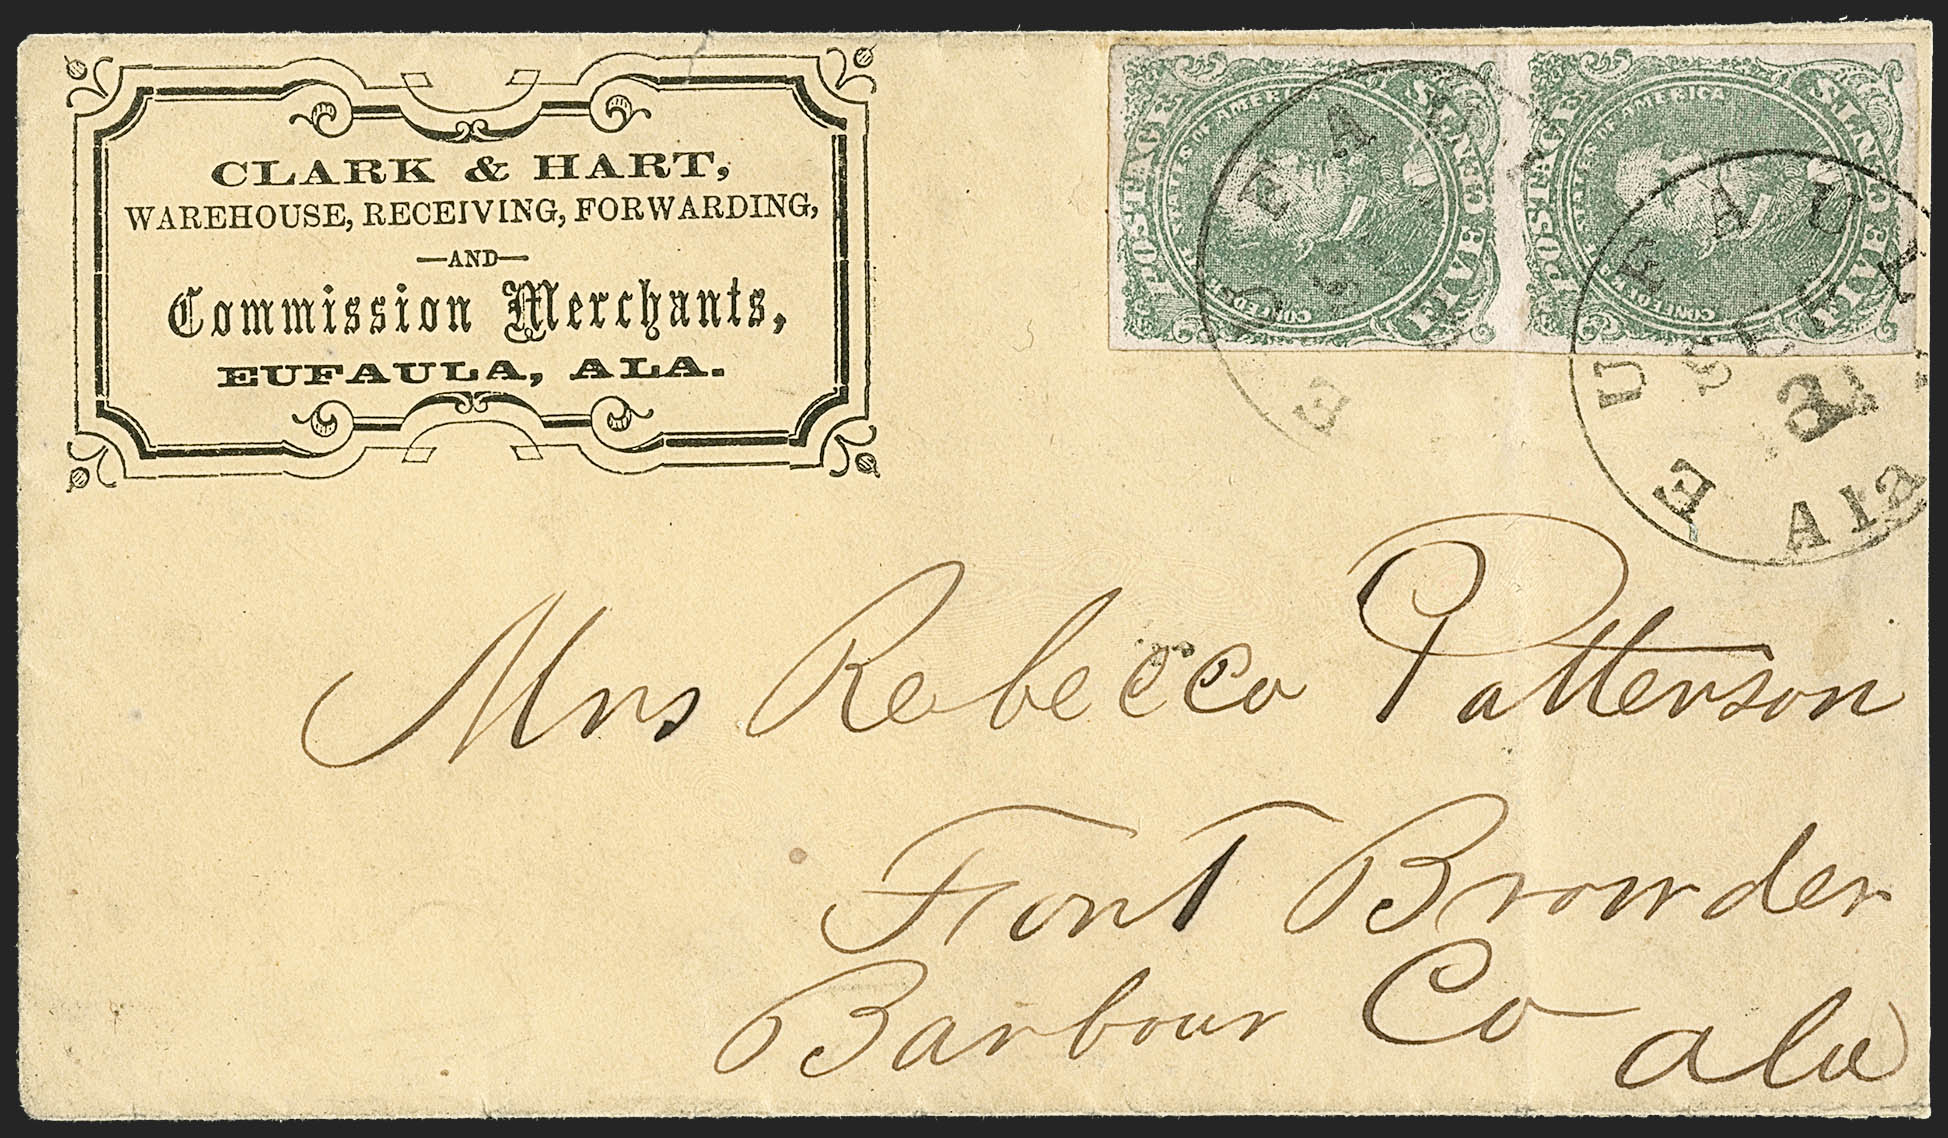 CLARK & HART,
WAREHOUSE, RECEIVING, FORWARDING,
—AND—
Commission Merchants,
EUFAULA, ALA.
POSTAGE
STATES OF AMERICA
CONFEDE
FIVE CENTS
POSTAGE
STATES OF AMERICA
CONFEDE
FIVE CENTS
EUFAU
EUFAUL
Ala
Mrs Rebecca Patterson
Fort Browder
Barbour Co Ala